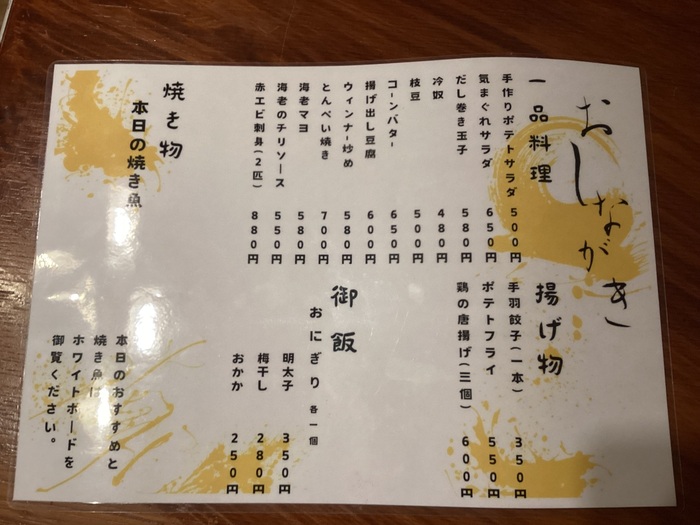 おしながき
一品料理
手作りポテトサラダ 500円
気まぐれサラダ 650円
だし巻き玉子 580円
冷奴 480円
枝豆 500円
コーンバター 650円
揚げ出し豆腐 600円
ウィンナー炒め 580円
とんぺい焼き 700円
海老マヨ 580円
海老のチリソース 550円
赤エビ刺身(2匹) 880円
焼き物
本日の焼き魚
揚げ物
手羽餃子(一本) 350円
ポテトフライ 550円
鶏の唐揚げ(三個) 600円
御飯
おにぎり 各一個
明太子 350円
梅干し 280円
おかか 250円
本日のおすすめと
焼き魚は
ホワイトボードを
御覧ください。